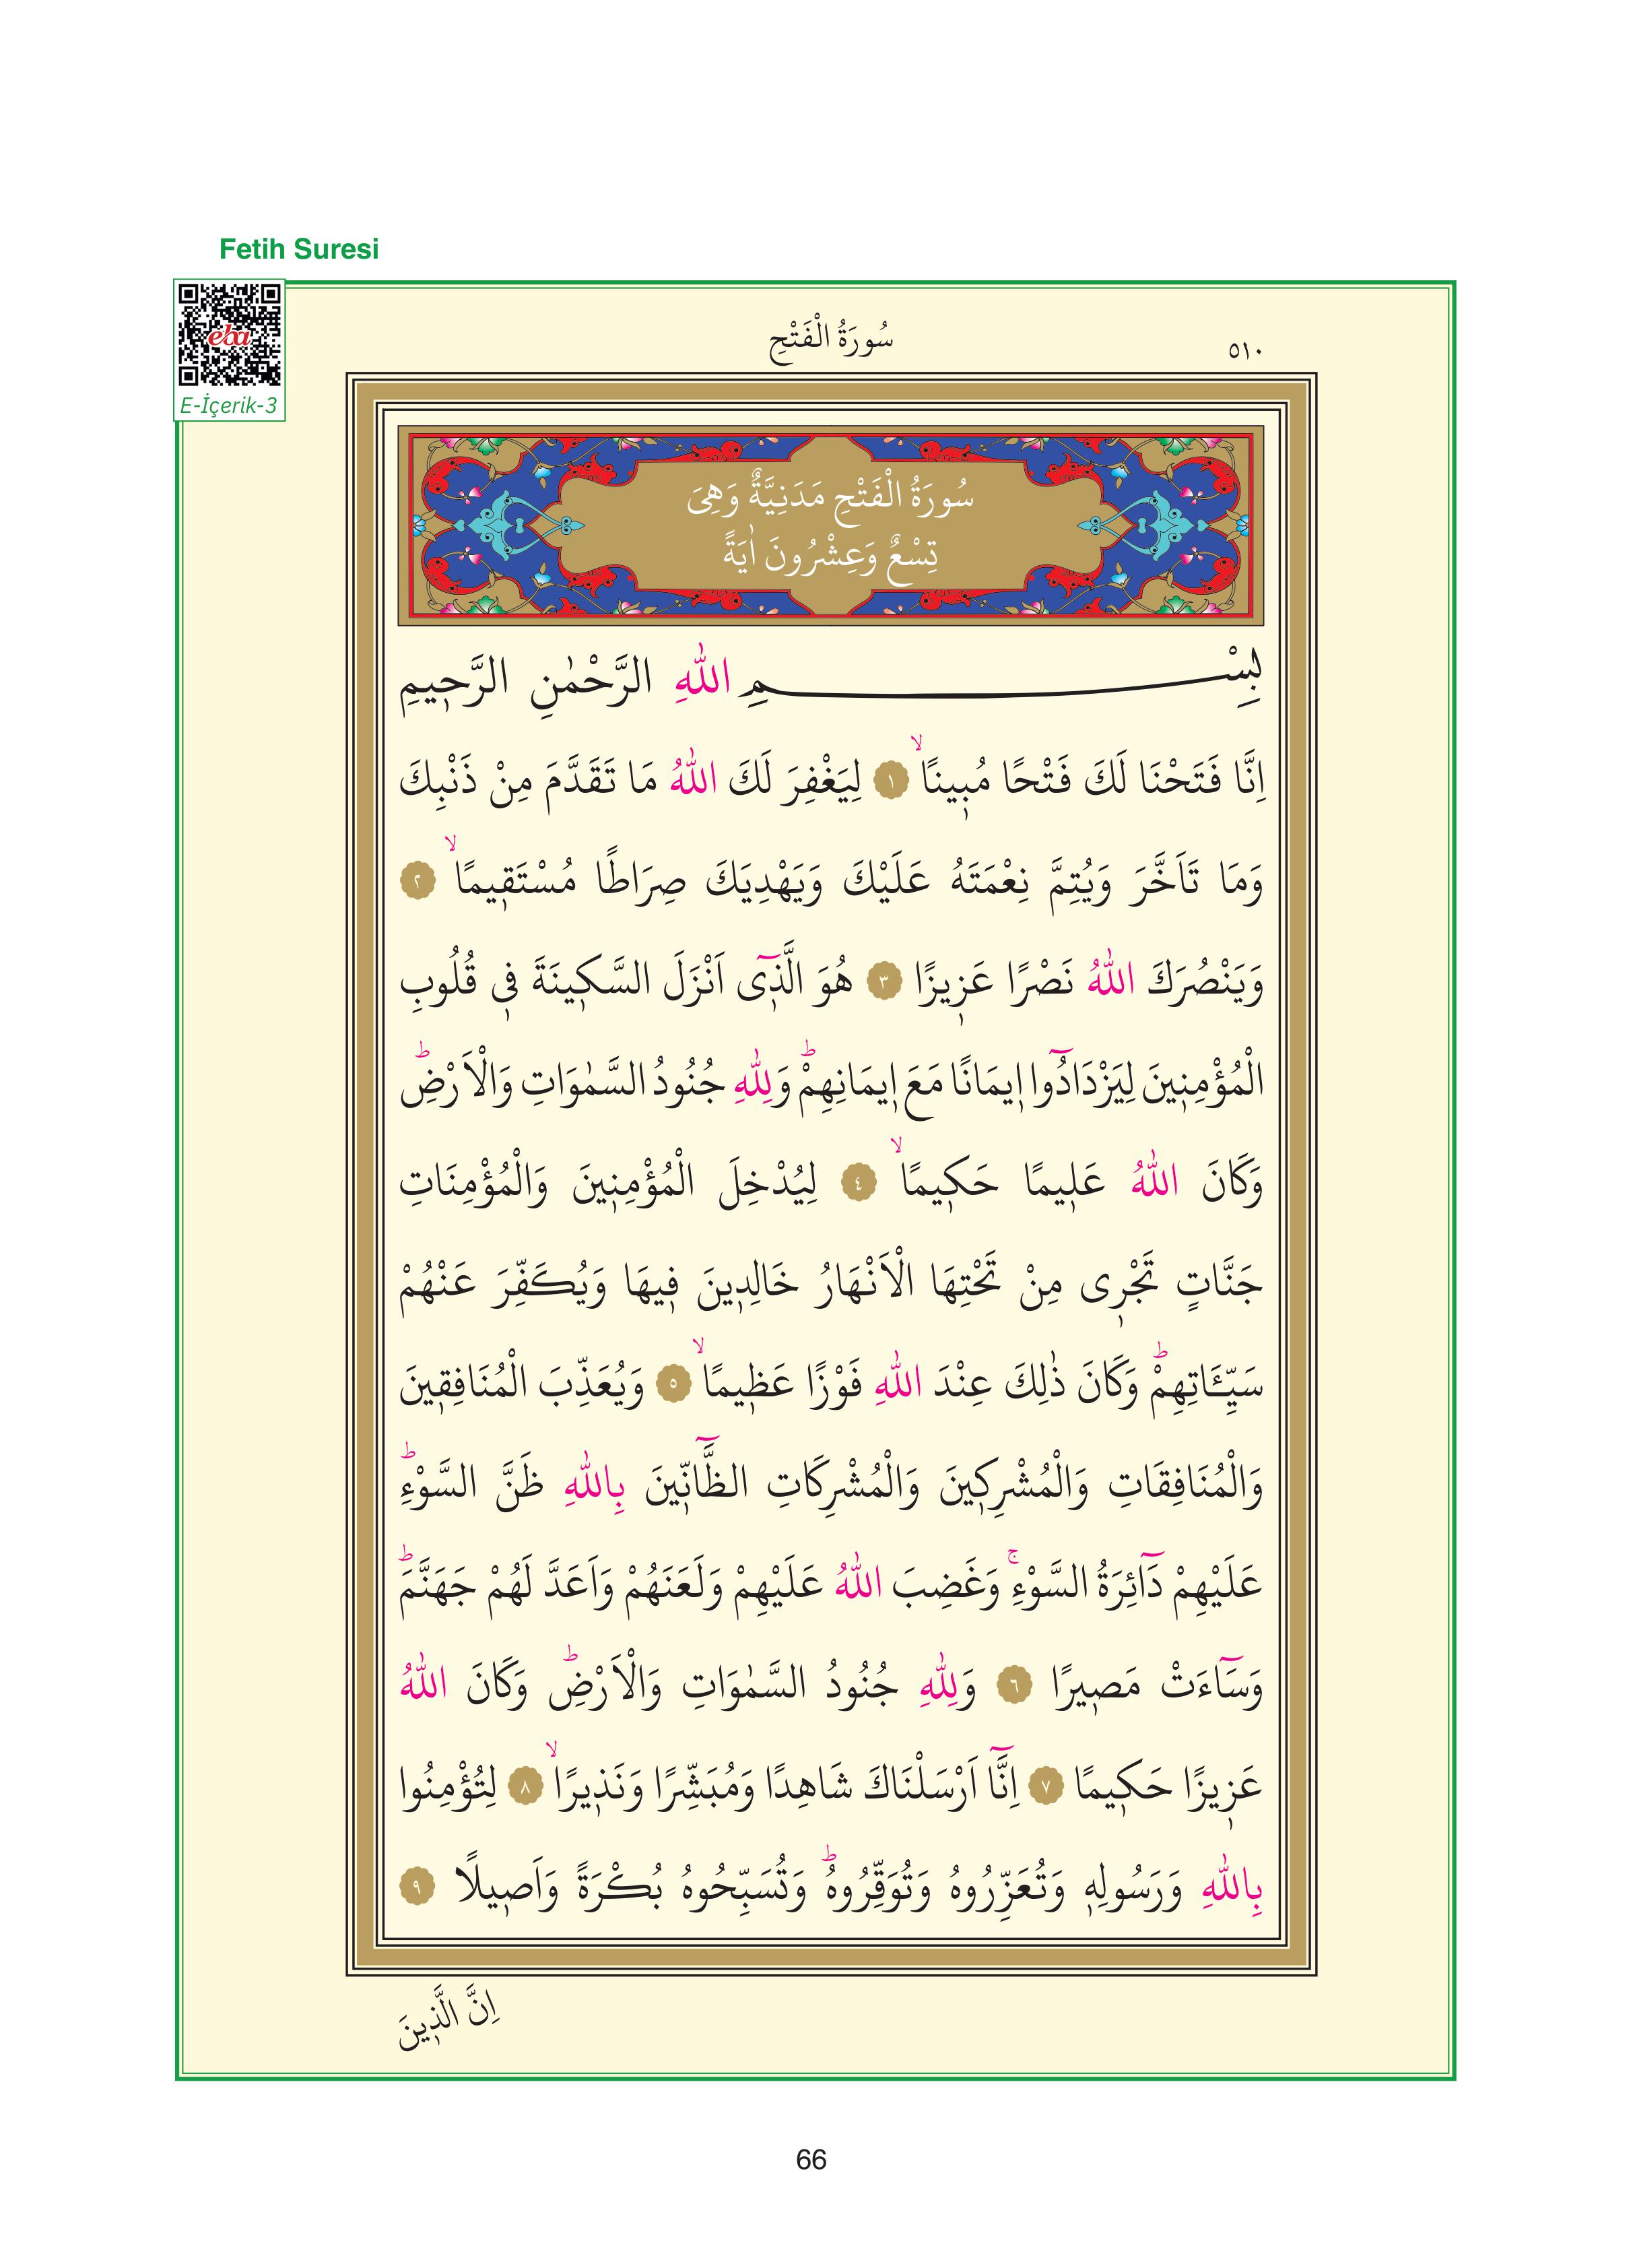 Fetih Suresi
eba
E-İçerik-3
سُورَةُ الْفَتْحِ
٥١٠
سُورَةُ الْفَتْحِ مَدَنِيَّةٌ وَهِىَ
تِسْعٌ وَعِشْرُونَ اٰيَةً
بِسْمِ اللّٰهِ الرَّحْمٰنِ الرَّح۪يمِ
اِنَّا فَتَحْنَا لَكَ فَتْحًا مُب۪ينًاۙ ١ لِيَغْفِرَ لَكَ اللّٰهُ مَا تَقَدَّمَ مِنْ ذَنْبِكَ
وَمَا تَاَخَّرَ وَيُتِمَّ نِعْمَتَهُ عَلَيْكَ وَيَهْدِيَكَ صِرَاطًا مُسْتَق۪يمًاۙ ٢
وَيَنْصُرَكَ اللّٰهُ نَصْرًا عَز۪يزًا ٣ هُوَ الَّذ۪ٓى اَنْزَلَ السَّك۪ينَةَ ف۪ى قُلُوبِ
الْمُؤْمِن۪ينَ لِيَزْدَادُٓوا ا۪يمَانًا مَعَ ا۪يمَانِهِمْۜ وَلِلّٰهِ جُنُودُ السَّمٰوَاتِ وَالْاَرْضِۜ
وَكَانَ اللّٰهُ عَل۪يمًا حَك۪يمًاۙ ٤ لِيُدْخِلَ الْمُؤْمِن۪ينَ وَالْمُؤْمِنَاتِ
جَنَّاتٍ تَجْر۪ى مِنْ تَحْتِهَا الْاَنْهَارُ خَالِد۪ينَ ف۪يهَا وَيُكَفِّرَ عَنْهُمْ
سَيِّـَٔاتِهِمْۜ وَكَانَ ذٰلِكَ عِنْدَ اللّٰهِ فَوْزًا عَظ۪يمًاۙ ٥ وَيُعَذِّبَ الْمُنَافِق۪ينَ
وَالْمُنَافِقَاتِ وَالْمُشْرِك۪ينَ وَالْمُشْرِكَاتِ الظَّٓانّ۪ينَ بِاللّٰهِ ظَنَّ السَّوْءِۜ
عَلَيْهِمْ دَٓائِرَةُ السَّوْءِۚ وَغَضِبَ اللّٰهُ عَلَيْهِمْ وَلَعَنَهُمْ وَاَعَدَّ لَهُمْ جَهَنَّمَۜ
وَسَٓاءَتْ مَص۪يرًا ٦ وَلِلّٰهِ جُنُودُ السَّمٰوَاتِ وَالْاَرْضِۜ وَكَانَ اللّٰهُ
عَز۪يزًا حَك۪يمًا ٧ اِنَّٓا اَرْسَلْنَاكَ شَاهِدًا وَمُبَشِّرًا وَنَذ۪يرًاۙ ٨ لِتُؤْمِنُوا
بِاللّٰهِ وَرَسُولِه۪ وَتُعَزِّرُوهُ وَتُوَقِّرُوهُۜ وَتُسَبِّحُوهُ بُكْرَةً وَاَص۪يلًا ٩
اِنَّ الَّذ۪ينَ
66